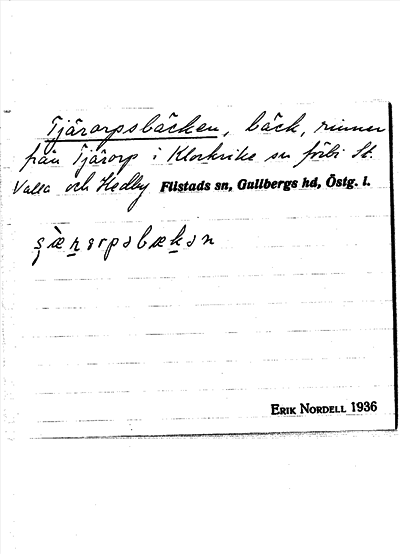 Tjärarpsbäcken, bäck, rinner
från Tjärorp i Klockrike sn förbi St.
Valla och Hedby Flistads sn, Gullbergs hd, Östg. l.
ERIK NORDELL 1936